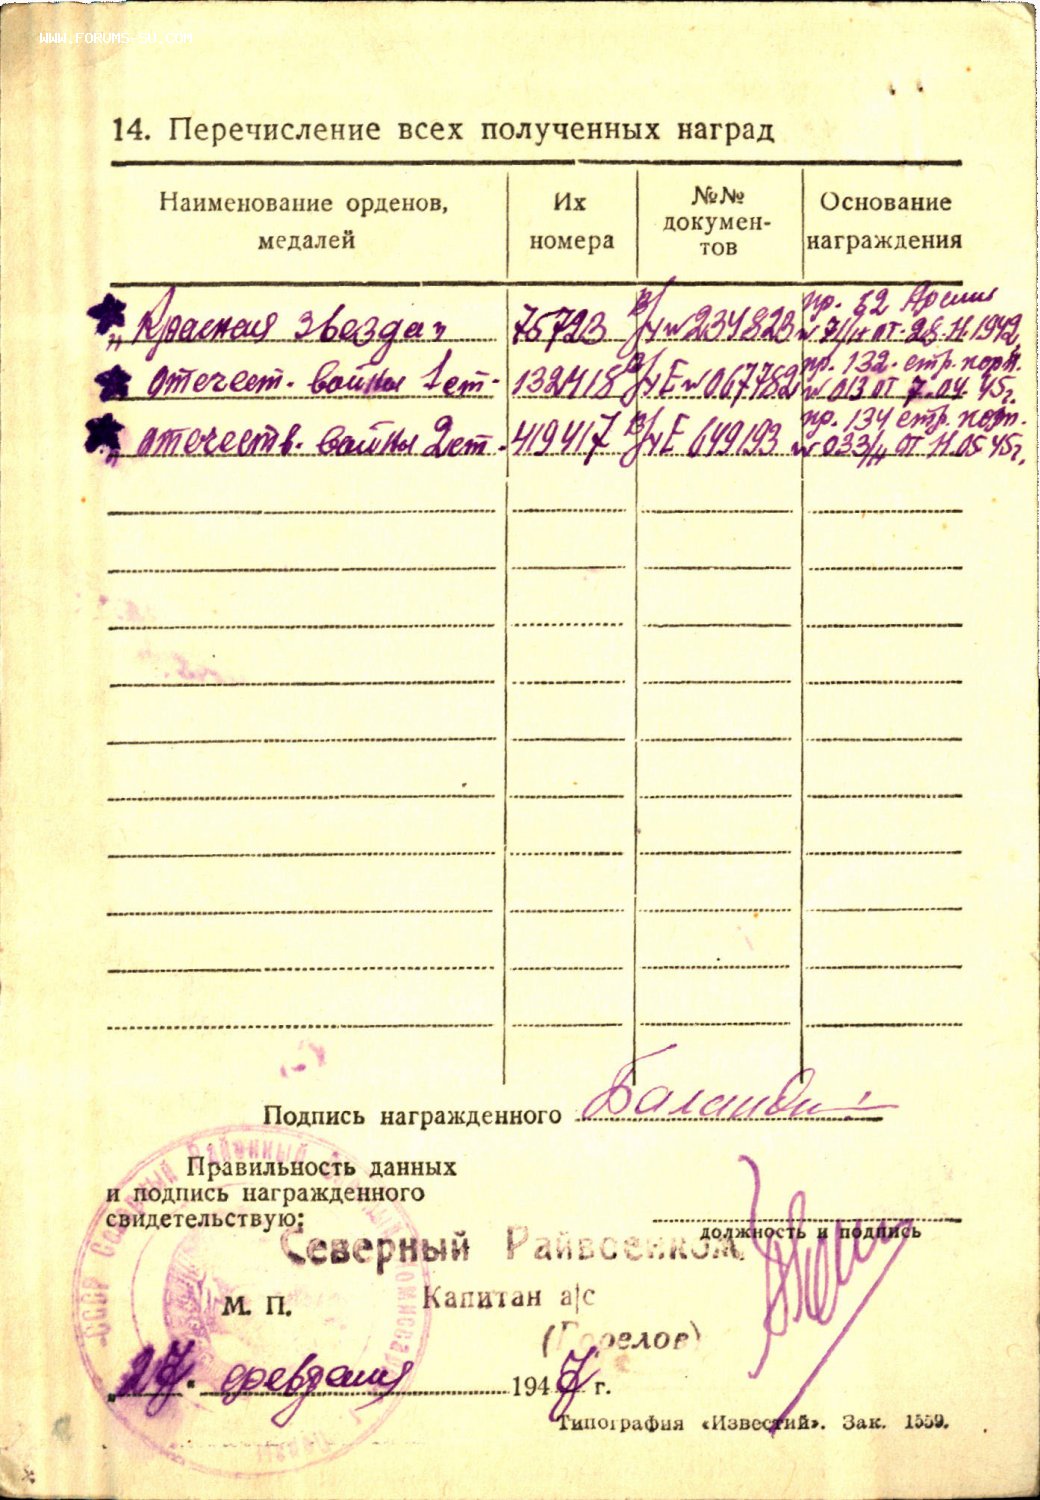 WWW.FORUMS-SU.COM
14. Перечисление всех полученных наград
Наименование орденов, медалей
Их номера
№№ докумен-тов
Основание награждения
пр. 52 Армии
„Красная звезда" 75723 № 234823 от 28.11.1942
пр. 132. стр. корп.
отечест. войны 1 ст. 132418 Е № 067782 № 013 от 7.04.45г.
пр. 134 стр. корп.
„отечеств. войны 2 ст. 419417 Е 649193 № 033/н от 11.05.45г.
Подпись награжденного Баландин
Правильность данных
и подпись награжденного
свидетельствую:
должность и подпись
Северный Райвоенком
Капитан а/с
М. П.
(Горелов)
„27" февраля 1947 г.
Типография «Известий». Зак. 1559.